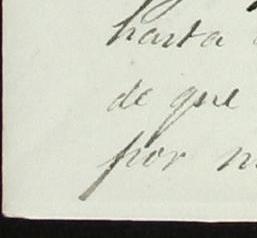 hasta
de que
por